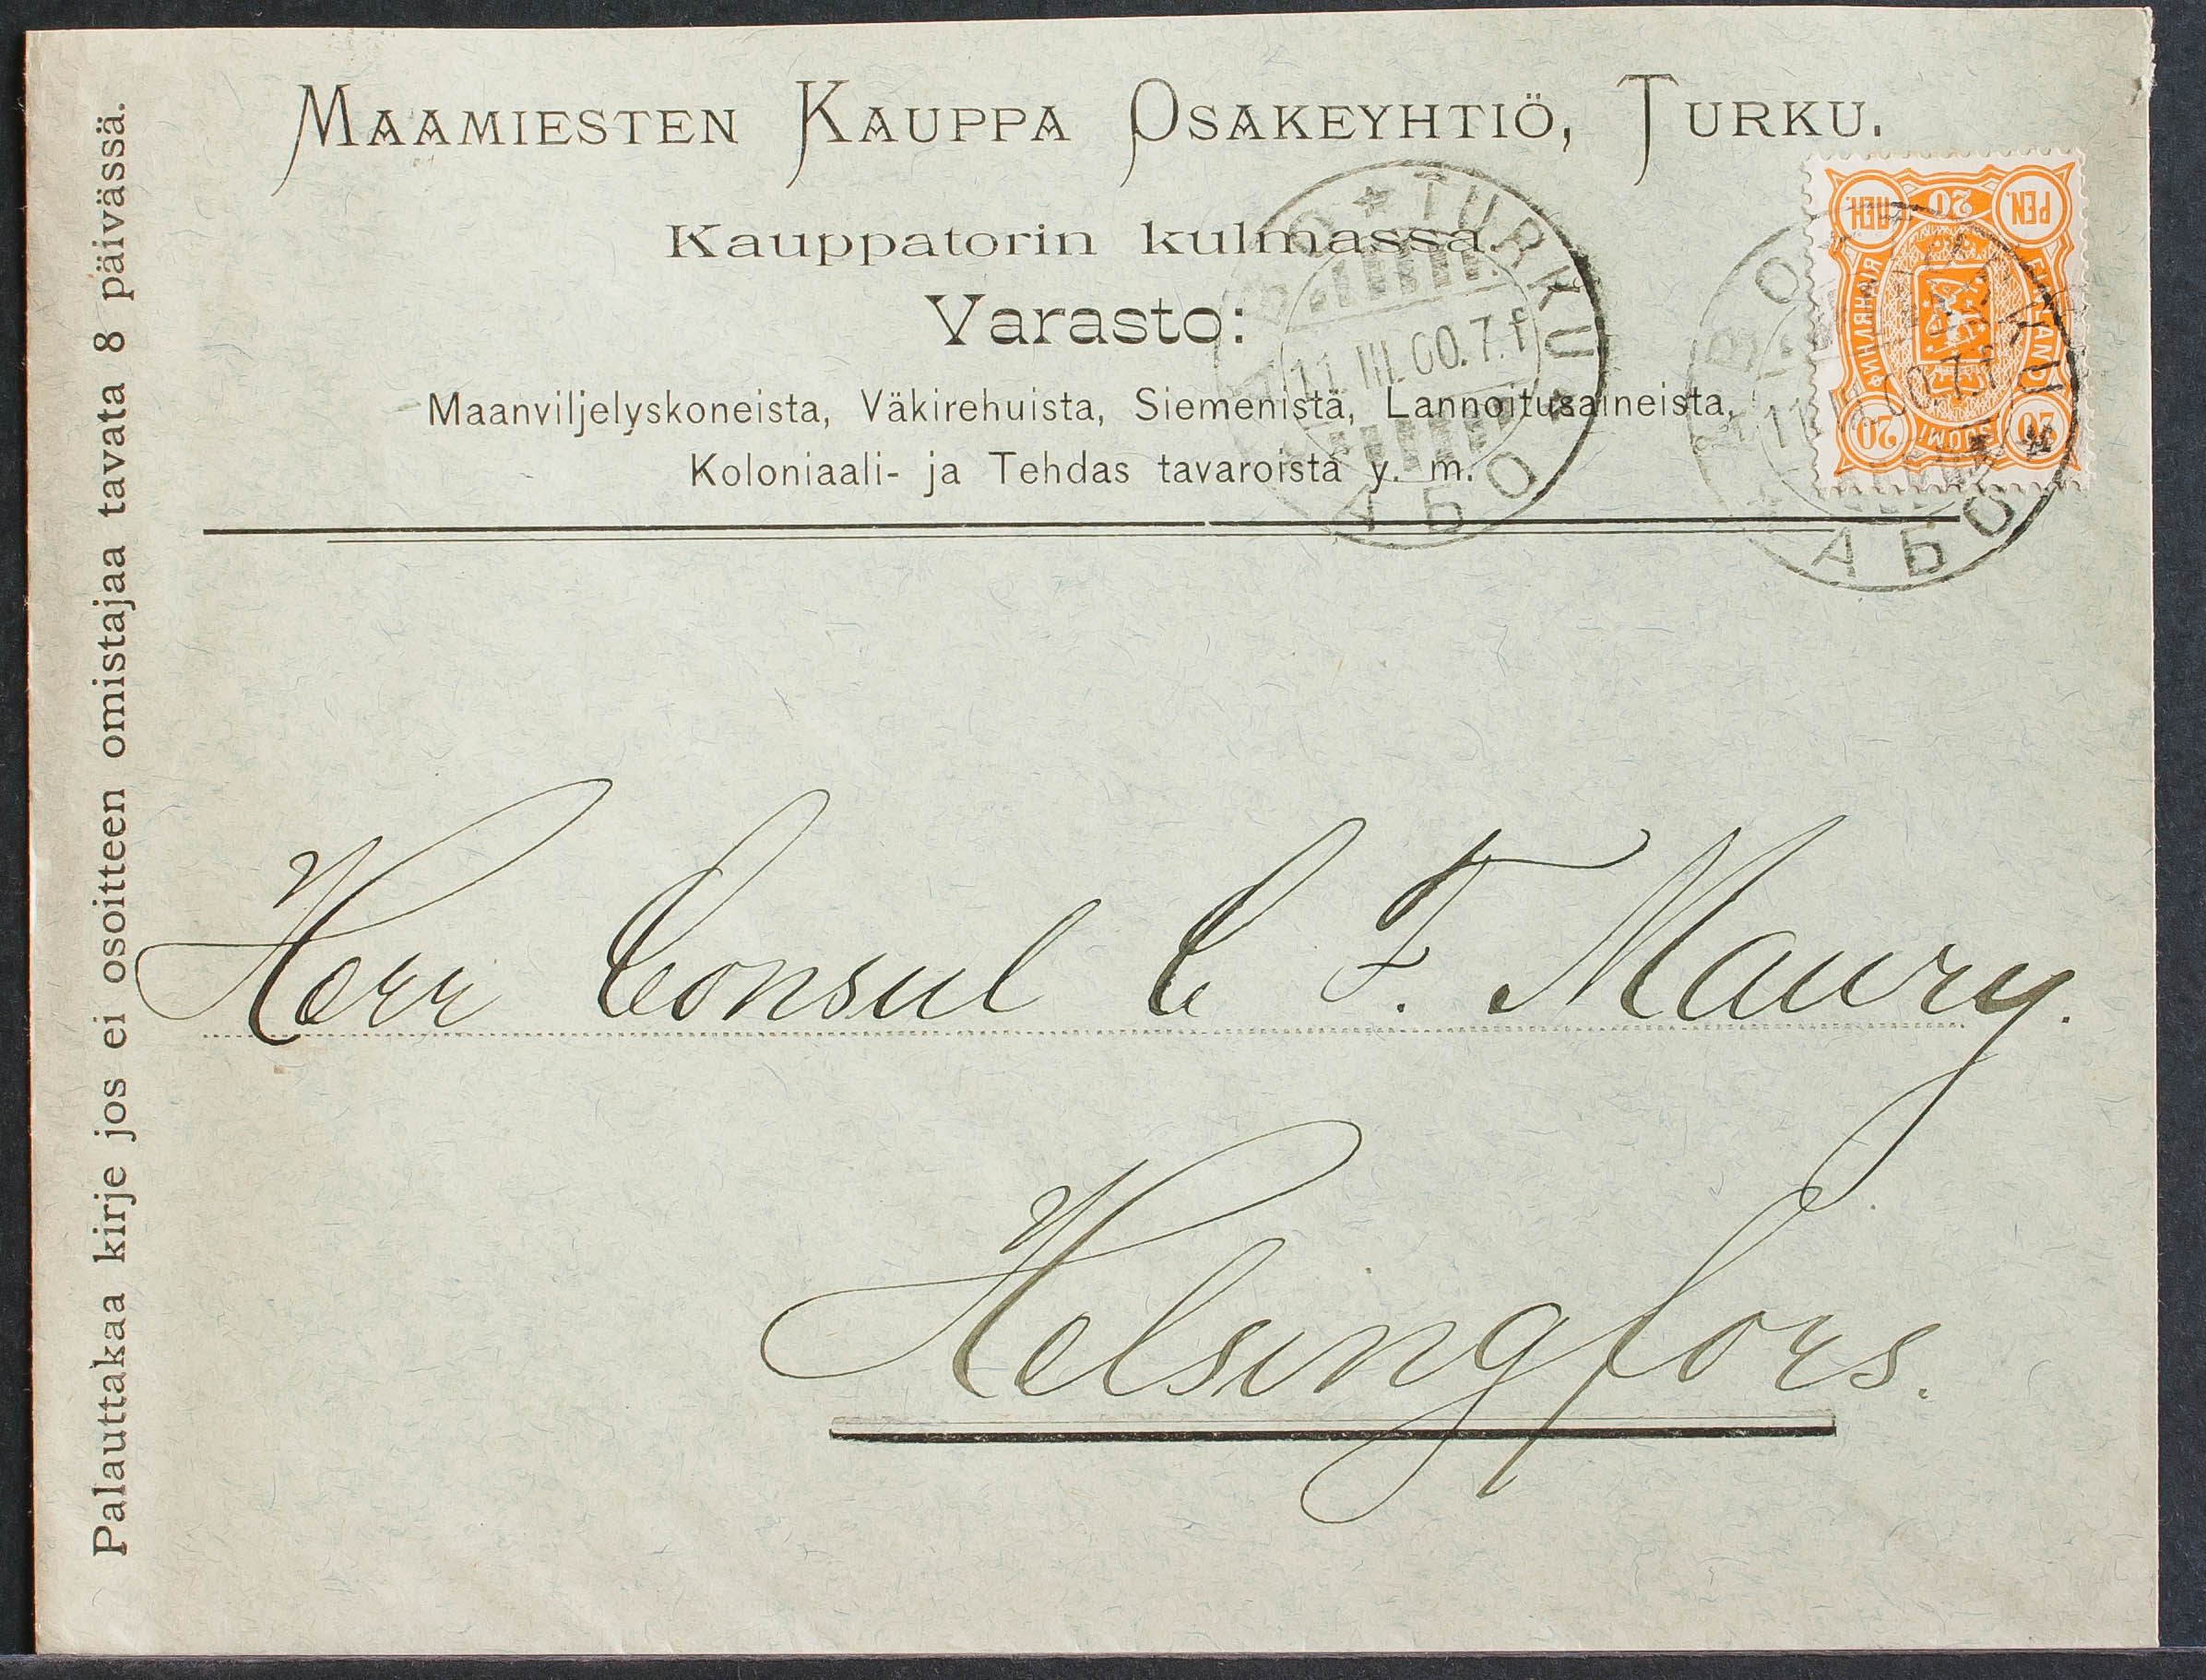 MAAMIESTEN KAUPPA OSAKEYHTIÖ, TURKU.
Kauppatorin kulmassa.
Varasto:
Maanviljelyskoneista, Väkirehuista, Siemenistä, Lannoitusaineista,
Koloniaali- ja Tehdas tavaroista y. m.
TURKU
11 III. 00. 7. f
АБО
ПЕН. 20 PEN.
ФИНЛЯНДІЯ
FINLAND
20 SUOMI 20
АБО
Herr Consul C F. Maury.
Helsingfors.
Palauttakaa kirje jos ei osoitteen omistajaa tavata 8 päivässä.